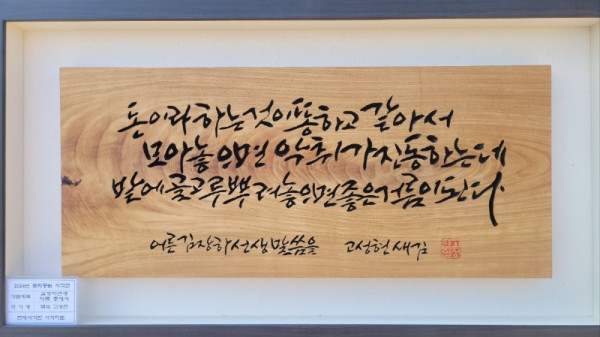 돈이라 하는 것이 똥하고 같아서
모아놓으면 악취가 진동하는데
밭에 골고루 뿌려 놓으면 좋은 거름이 된다.
어른 김장하 선생 말씀을 고성현 새김